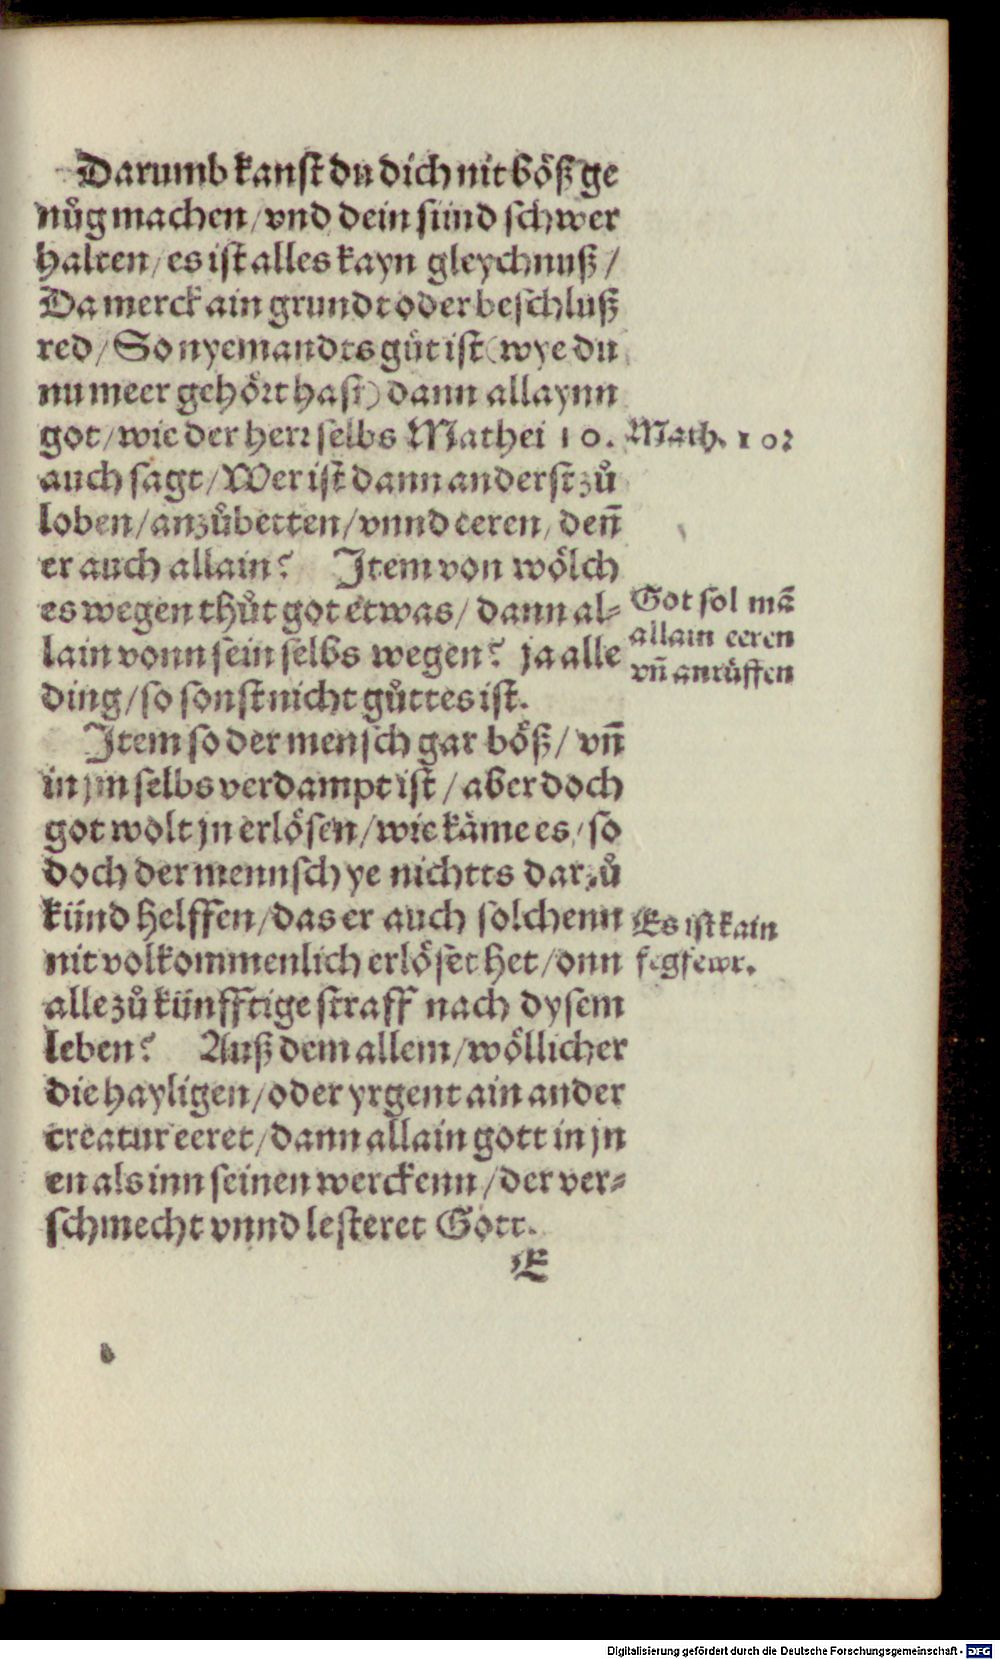 Darumb kanst du dich nit böß ge
nůg machen/ vnd dein sünd schwer
halten/ es ist alles kayn gleychnuß/
Da merck ain grundt oder beschluß
red/ So nyemandts gůt ist (wye du
nu meer gehört hast) dann allaynn
got/ wie der herr selbs Mathei 10.
Math. 10
auch sagt/ Wer ist dann anderst zů
loben/ anzůbetten/ vnnd eeren/ deñ
er auch allain? Item von wölch
es wegen thůt got etwas/ dann al⸗
lain vonn sein selbs wegen? ja alle
Got sol mã
allain eeren
vñ anrůffen
ding/ so sonst nicht gůttes ist.
Item so der mensch gar böß/ vñ
in jm selbs verdampt ist/ aber doch
got wolt jn erlösen/ wie käme es/ so
doch der mennsch ye nichtts darzů
künd helffen/ das er auch solchenn
nit volkommenlich erlöset het/ onn
Es ist kain
fegfewr.
alle zůkünfftige straff nach dysem
leben? Auß dem allem/ wöllicher
die hayligen/ oder yrgent ain ander
creatur eeret/ dann allain gott in jn
en als inn seinen werckenn/ der ver⸗
schmecht vnnd lesteret Gott.
E
Digitalisierung gefördert durch die Deutsche Forschungsgemeinschaft - DFG